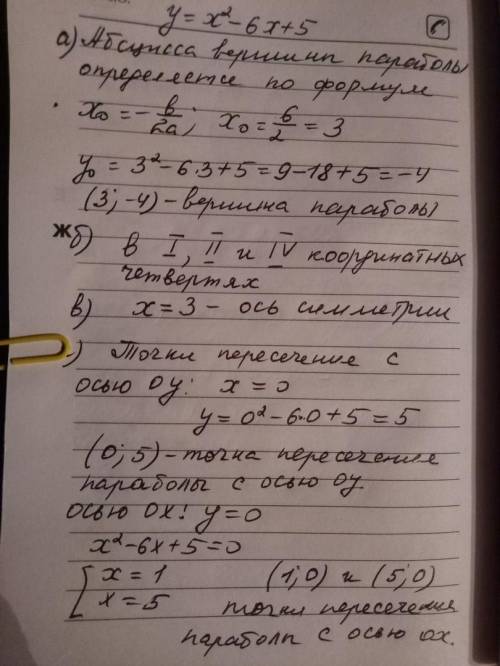 y = x² - 6x + 5
а) Абсцисса вершины параболы
определяется по формул
x₀ = - в/2a; x₀ = 6/2 = 3
y₀ = 3² - 6·3 + 5 = 9 - 18 + 5 = -4
(3; -4) - вершина параболы
ж б) в I, II и IV координатных
четвертях
в) x = 3 - ось симметрии
) Точки пересечение с
осью Oy: x = 0
y = 0² - 6·0 + 5 = 5
(0; 5) - точка пересечения
параболы с осью Oy
осью Ox: y = 0
x² - 6x + 5 = 0
[ x = 1 (1; 0) и (5; 0)
x = 5 точки пересечения
параболы с осью Ox.